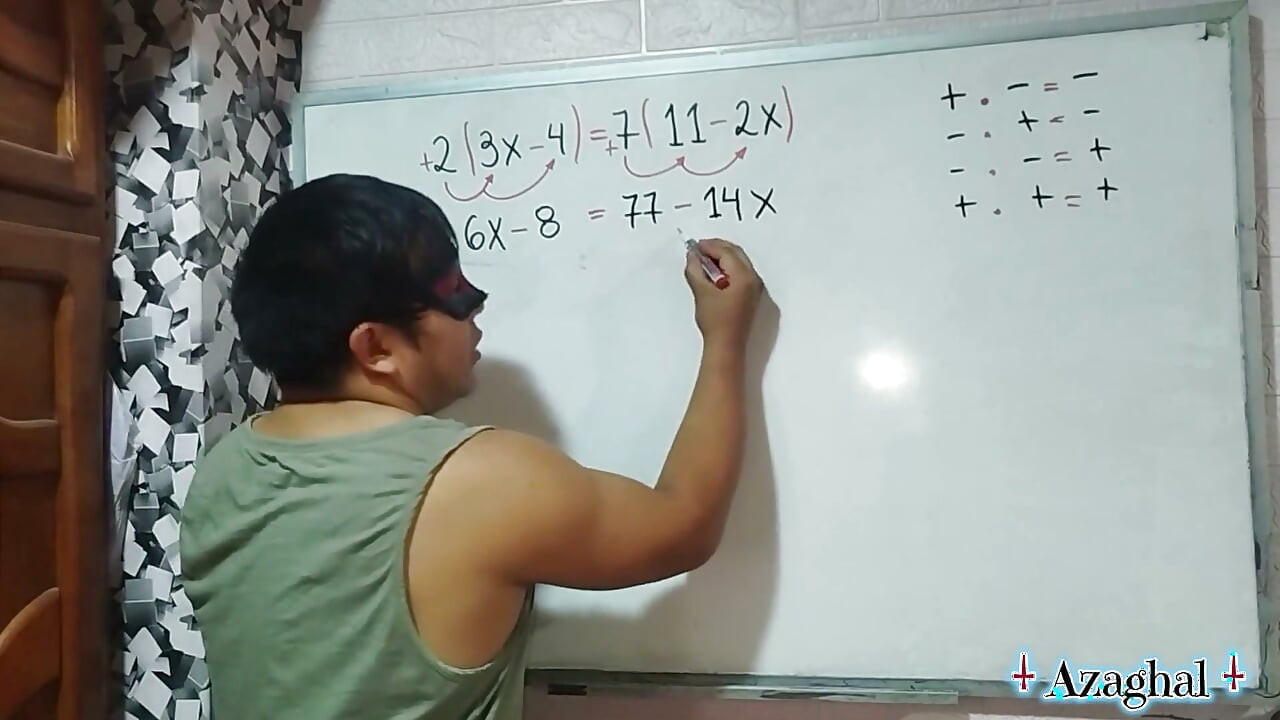 +2(3x-4)=+7(11-2x)
6x-8 = 77-14x
+ . - = -
- . + = -
- . - = +
+ . + = +
Azaghal